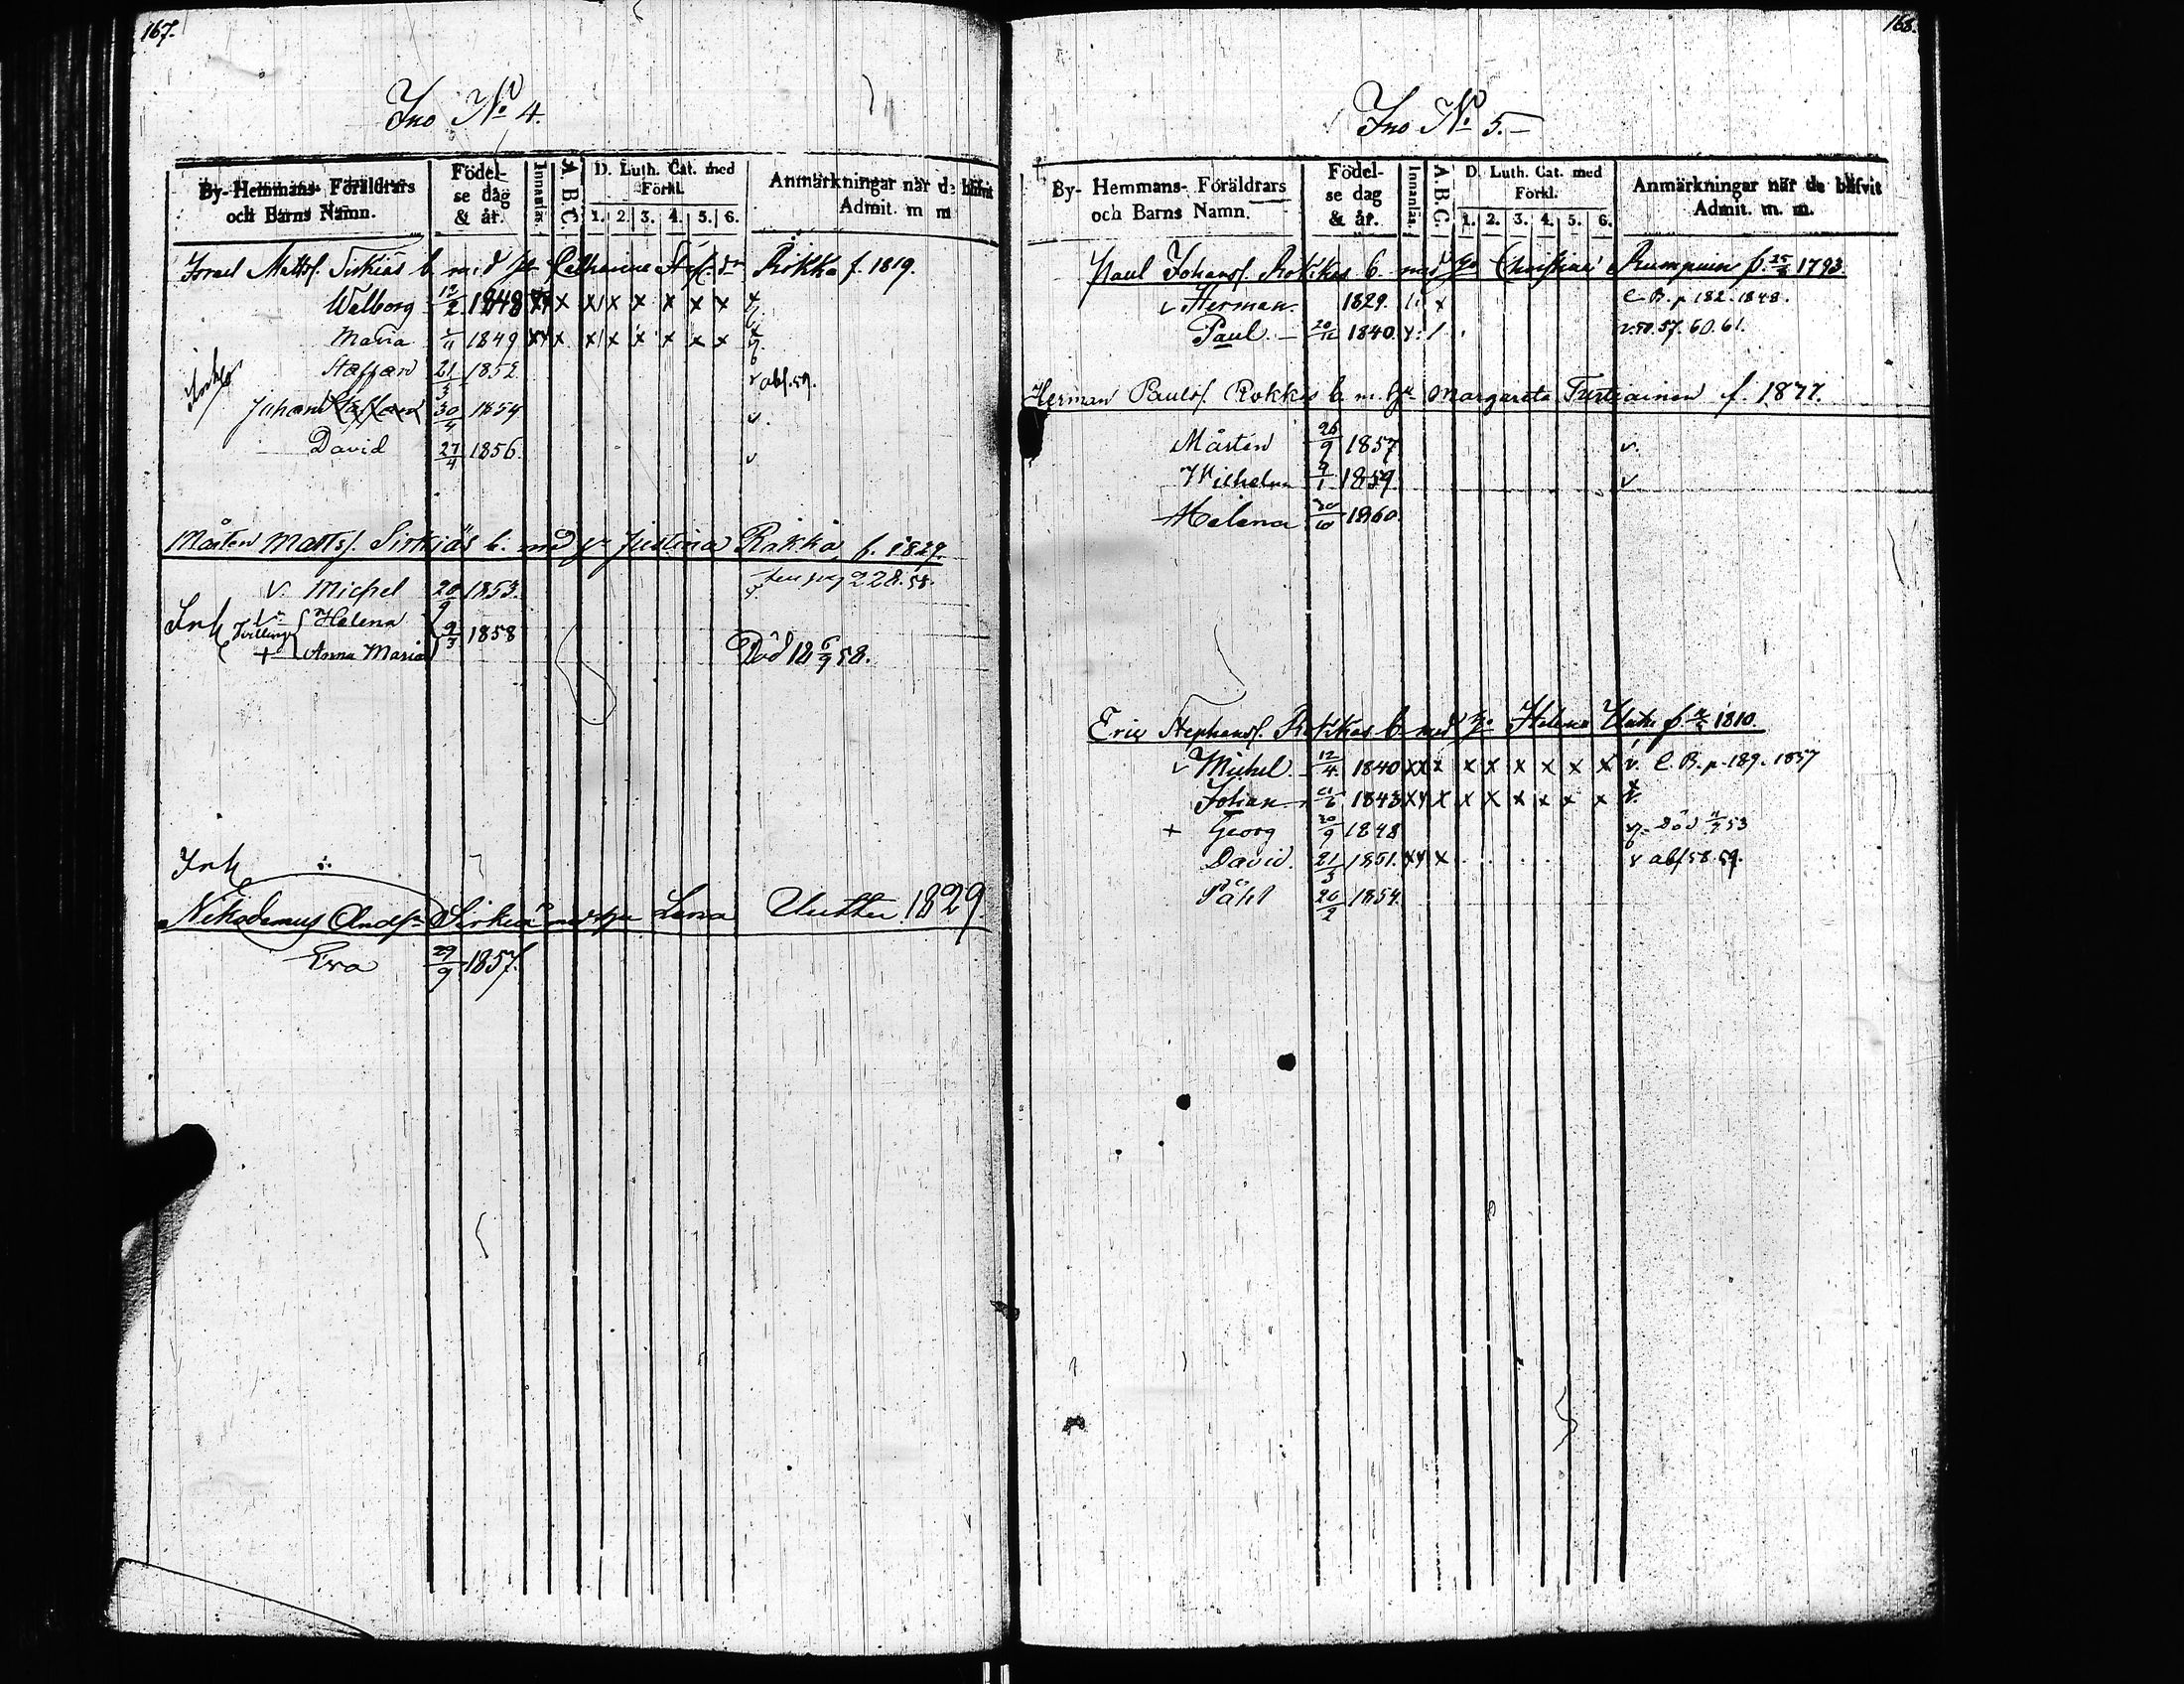 167.
Ino No 4.
By- Hemmans- Föräldrars och Barns Namn. Födelse dag & år. Innanläs. A. B. C. D. Luth. Cat. med Förkl. 1. 2. 3. 4. 5. 6. Anmärkningar när de blifvit Admit. m m
Israel Mattsf. Sirkiäs b. med hu Catharina Rokka f. 1819.
Walborg 12/2 1848 xx x x x x x x x
Maria 1849 xx x x x x x x x
Staffan 21/3 1852 v abs. 59.
Johan Staffan 30/4 1854 v.
David 27/4 1856. v
Mårten Mattsf. Sirkiäs b. med hu Justina Rokka f. 1829.
v. Michel 20/9 1853. 228. 58.
Ink Tvillingr Helena 9/3 1858
+ Anna Maria Död 18 6/9 58.
Ink
Nikodemus Andsn Sirkiä med hu Lena 1829.
Eva 29/9 1857.
168.
Ino No 5.
By- Hemmans- Föräldrars och Barns Namn. Födelse dag & år. Innanläs. A. B. C. D. Luth. Cat. med Förkl. 1. 2. 3. 4. 5. 6. Anmärkningar när de blifvit Admit. m. m.
Paul Johansf. Rokkas b. med hu Christina f. 25/2 1793
v Herman. 1829. x C. B. p 182. 1848.
Paul. 1840. 57. 60. 61.
Herman Paulsf. Rokkas b. m. hu Margareta Turtiainen f. 1877.
Mårten 26/9 1857 v.
Wilhelm 9/1 1859. v
Helena 30/10 1860.
Eric Stephansf. Rokkas b. med hu Helena f. 1810.
v Michel. 12/4 1840 xx x x x x x x x v. C. B. p. 189. 1857
Johan 1843 xx x x x x x x x
+ Georg 30/9 1848 Död 53
David. 21/3 1851. xx x v abs 58. 59.
Påhl 20/2 1854.